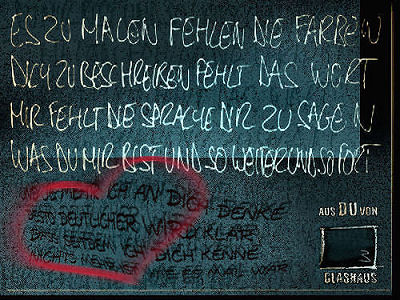 ES ZU MALEN FEHLEN DIE FARBEN
DICH ZU BESCHREIBEN FEHLT DAS WORT
MIR FEHLT DIE SPRACHE DIR ZU SAGEN
WAS DU MIR BIST UND SO WEITER UND SO FORT
UND JE MEHR ICH AN DICH DENKE
DESTO DEUTLICHER WIRD KLAR
DASS SEITDEM ICH DICH KENNE
NICHTS WIE ES MAL WAR
AUS DU VON
GLASHAUS